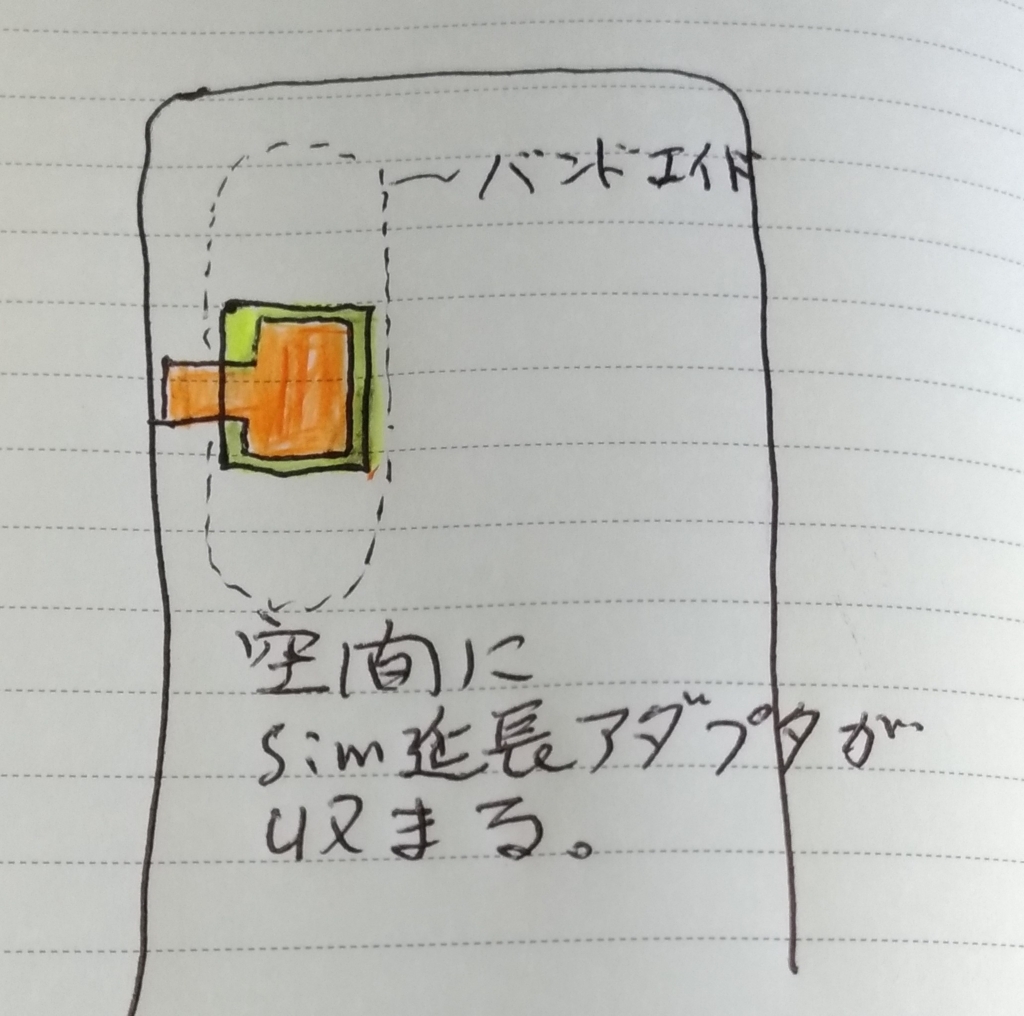 バンドエイド
空間に
sim延長アダプタが
収まる。